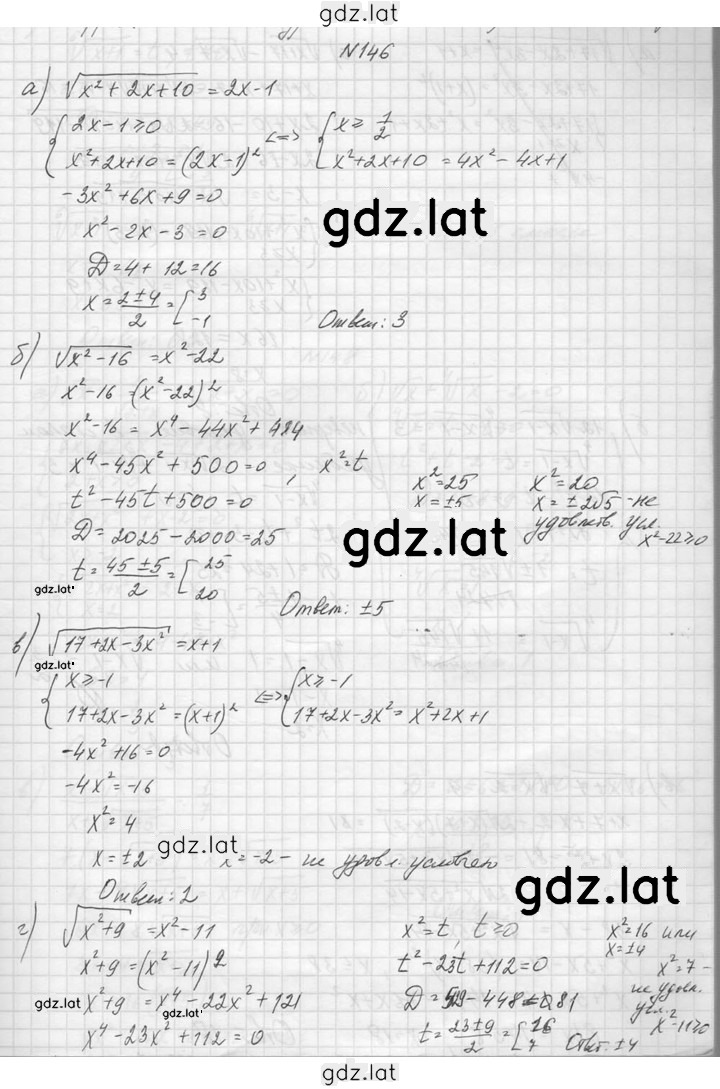 gdz.lat
N146
а) √(x² + 2x + 10) = 2x - 1
{ 2x - 1 ≥ 0 <=> { x ≥ 1/2
{ x² + 2x + 10 = (2x - 1)² { x² + 2x + 10 = 4x² - 4x + 1
-3x² + 6x + 9 = 0
gdz.lat
x² - 2x - 3 = 0
D = 4 + 12 = 16
x = (2 ± 4)/2 = [ 3 -1
Ответ: 3
б) √(x² - 16) = x² - 22
x² - 16 = (x² - 22)²
x² - 16 = x⁴ - 44x² + 484
x⁴ - 45x² + 500 = 0, x² = t
t² - 45t + 500 = 0
D = 2025 - 2000 = 25
t = (45 ± 5)/2 = [ 25 20
x² = 25
x = ±5
x² = 20
x = ±2√5 - не
удовлетв. усл.
x² - 22 ≥ 0
gdz.lat
gdz.lat
Ответ: ±5
в) √(17 + 2x - 3x²) = x + 1
gdz.lat
{ x ≥ -1 <=> { x ≥ -1
{ 17 + 2x - 3x² = (x + 1)² { 17 + 2x - 3x² = x² + 2x + 1
-4x² + 16 = 0
-4x² = -16
x² = 4
x = ±2 x = -2 - не удовл. условию
gdz.lat
gdz.lat
Ответ: 2
г) √(x² + 9) = x² - 11
x² + 9 = (x² - 11)²
gdz.lat
x² + 9 = x⁴ - 22x² + 121
x⁴ - 23x² + 112 = 0
x² = t, t ≥ 0
t² - 23t + 112 = 0
D = 529 - 448 = 81
t = (23 ± 9)/2 = [ 16 7
gdz.lat
x² = 16 или
x = ±4
x² = 7 -
не удовл.
усл.
x² - 11 ≥ 0
Ответ: ±4
gdz.lat